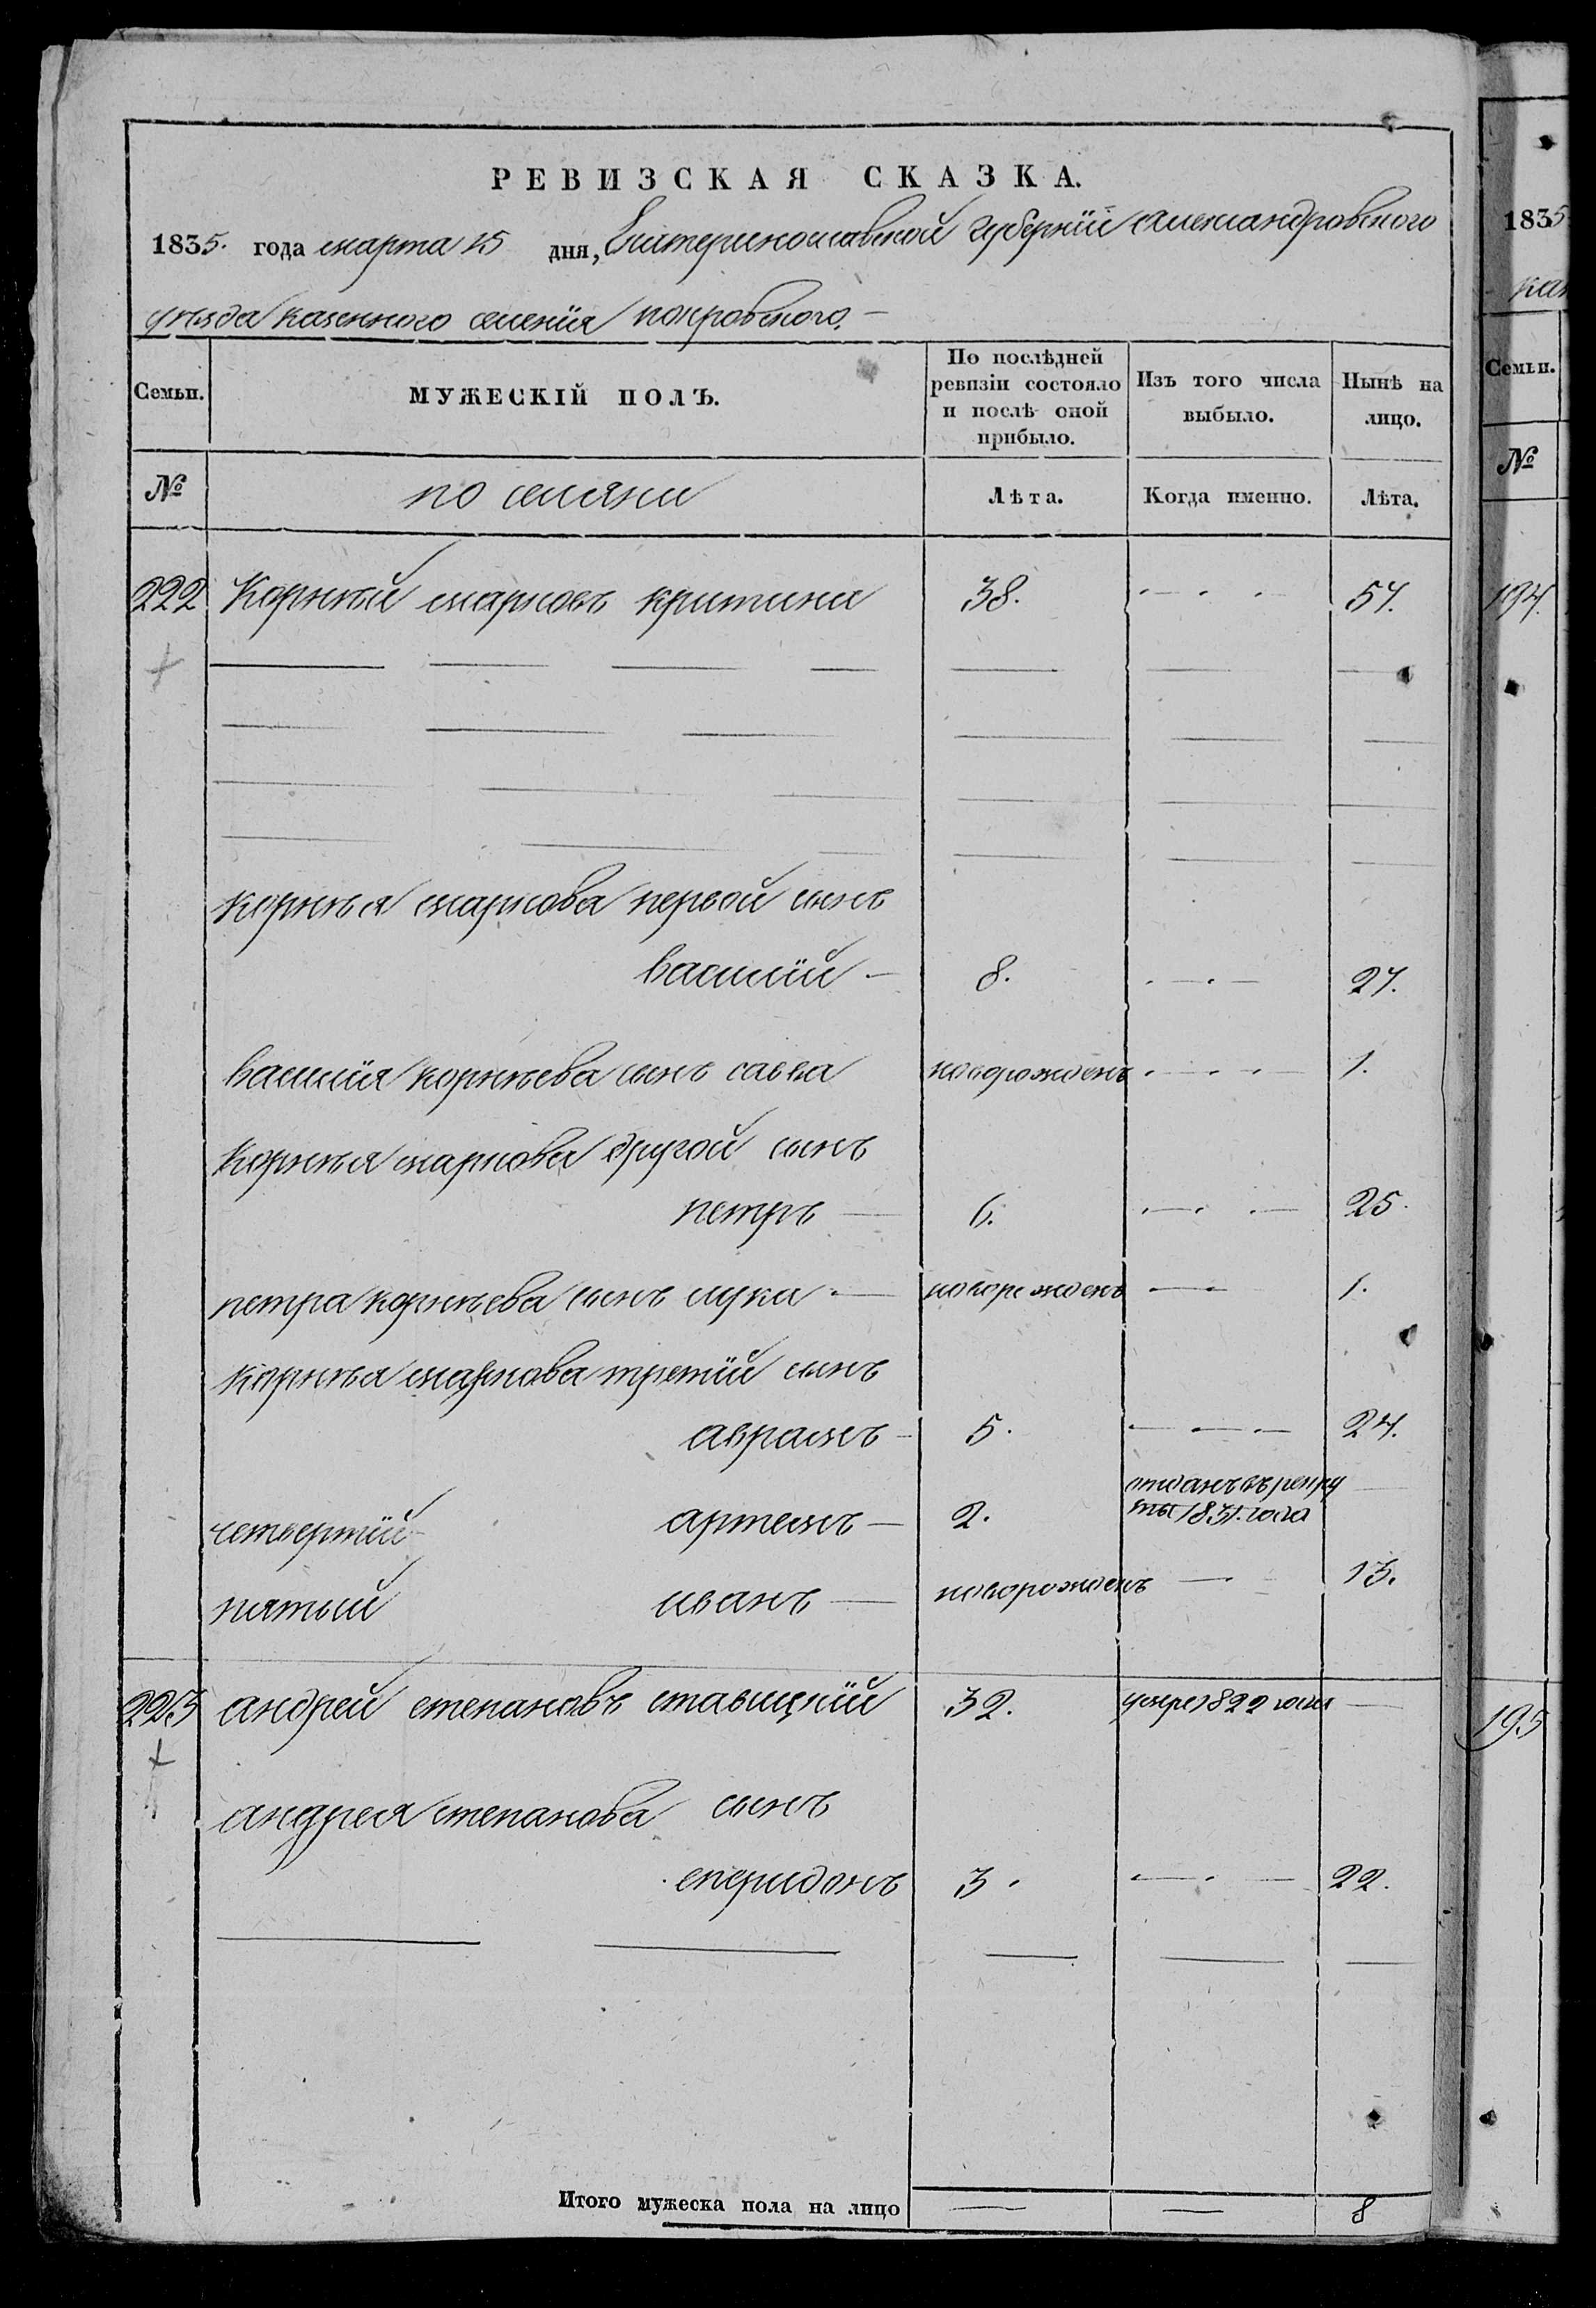 РЕВИЗСКАЯ СКАЗКА.
1835. года марта 15 дня, Екатеринославской губерніи Александровского
уезда казенного селенія покровского.
Семьи. МУЖЕСКІЙ ПОЛЪ. По послѣдней ревизіи состояло и послѣ оной прибыло. Изъ того числа выбыло. Нынѣ на лицо.
№ Лѣта. Когда именно. Лѣта.
222 Корнѣй марковъ 38. 57.
корнѣя маркова первой сынъ
василій 8. 27.
василія корнѣева сынъ савва новорожденъ 1.
корнѣя маркова другой сынъ
петръ 6. 25.
петра корнѣева сынъ лука новорожденъ 1.
корнѣя маркова третій сынъ
аврамъ 5. 24.
четвертій артемъ 2. отданъ въ рекру
ты 1831. года
пятый иванъ новорожденъ 13.
223 андрей степановъ ставицкій 32. умре 1822 года
андрея степанова сынъ
спиридонъ 3. 22.
Итого мужеска пола на лицо 8
1835
Семьи.
№
194.
195